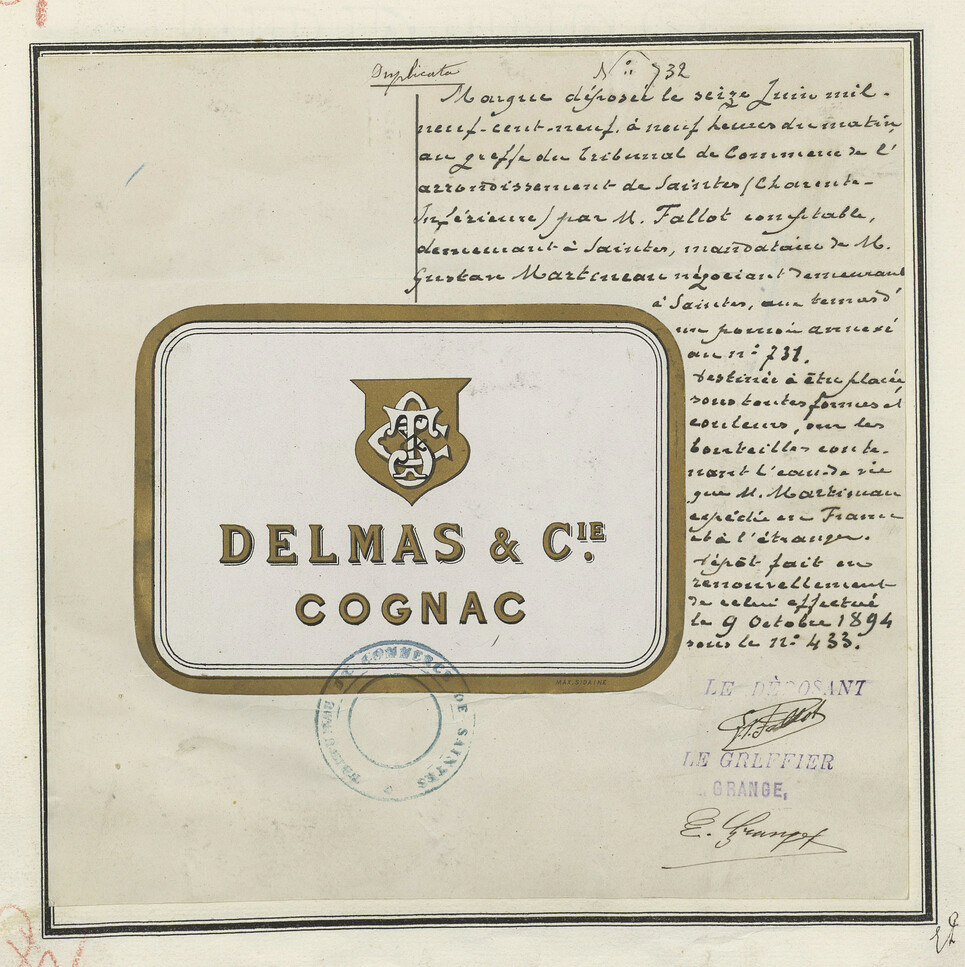 Duplicata
N° 732
Marque déposée le seize Juin mil-
neuf-cent-neuf, à neuf heures du matin,
au greffe du Tribunal de Commerce de l'
arrondissement de Saintes (Charente-
Inférieure) par M. Fallot comptable,
demeurant à Saintes, mandataire de M.
Gustave Martineau négociant demeurant
à Saintes, aux termes d'
un pouvoir annexé
au n° 731.
Destinée à être placée,
sous toutes formes et
couleurs, sur les
bouteilles conte-
nant l'eau-de-vie
que M. Martineau
expédie en France
et à l'étranger.
Dépôt fait en
renouvellement
de celui effectué
le 9 Octobre 1894
sous le n° 433.
DELMAS & CIE.
COGNAC
MAX. SIDAINE
TRIBUNAL DE COMMERCE DE SAINTES
LE DÉPOSANT
Fallot
LE GREFFIER
GRANGE,
E. Grange